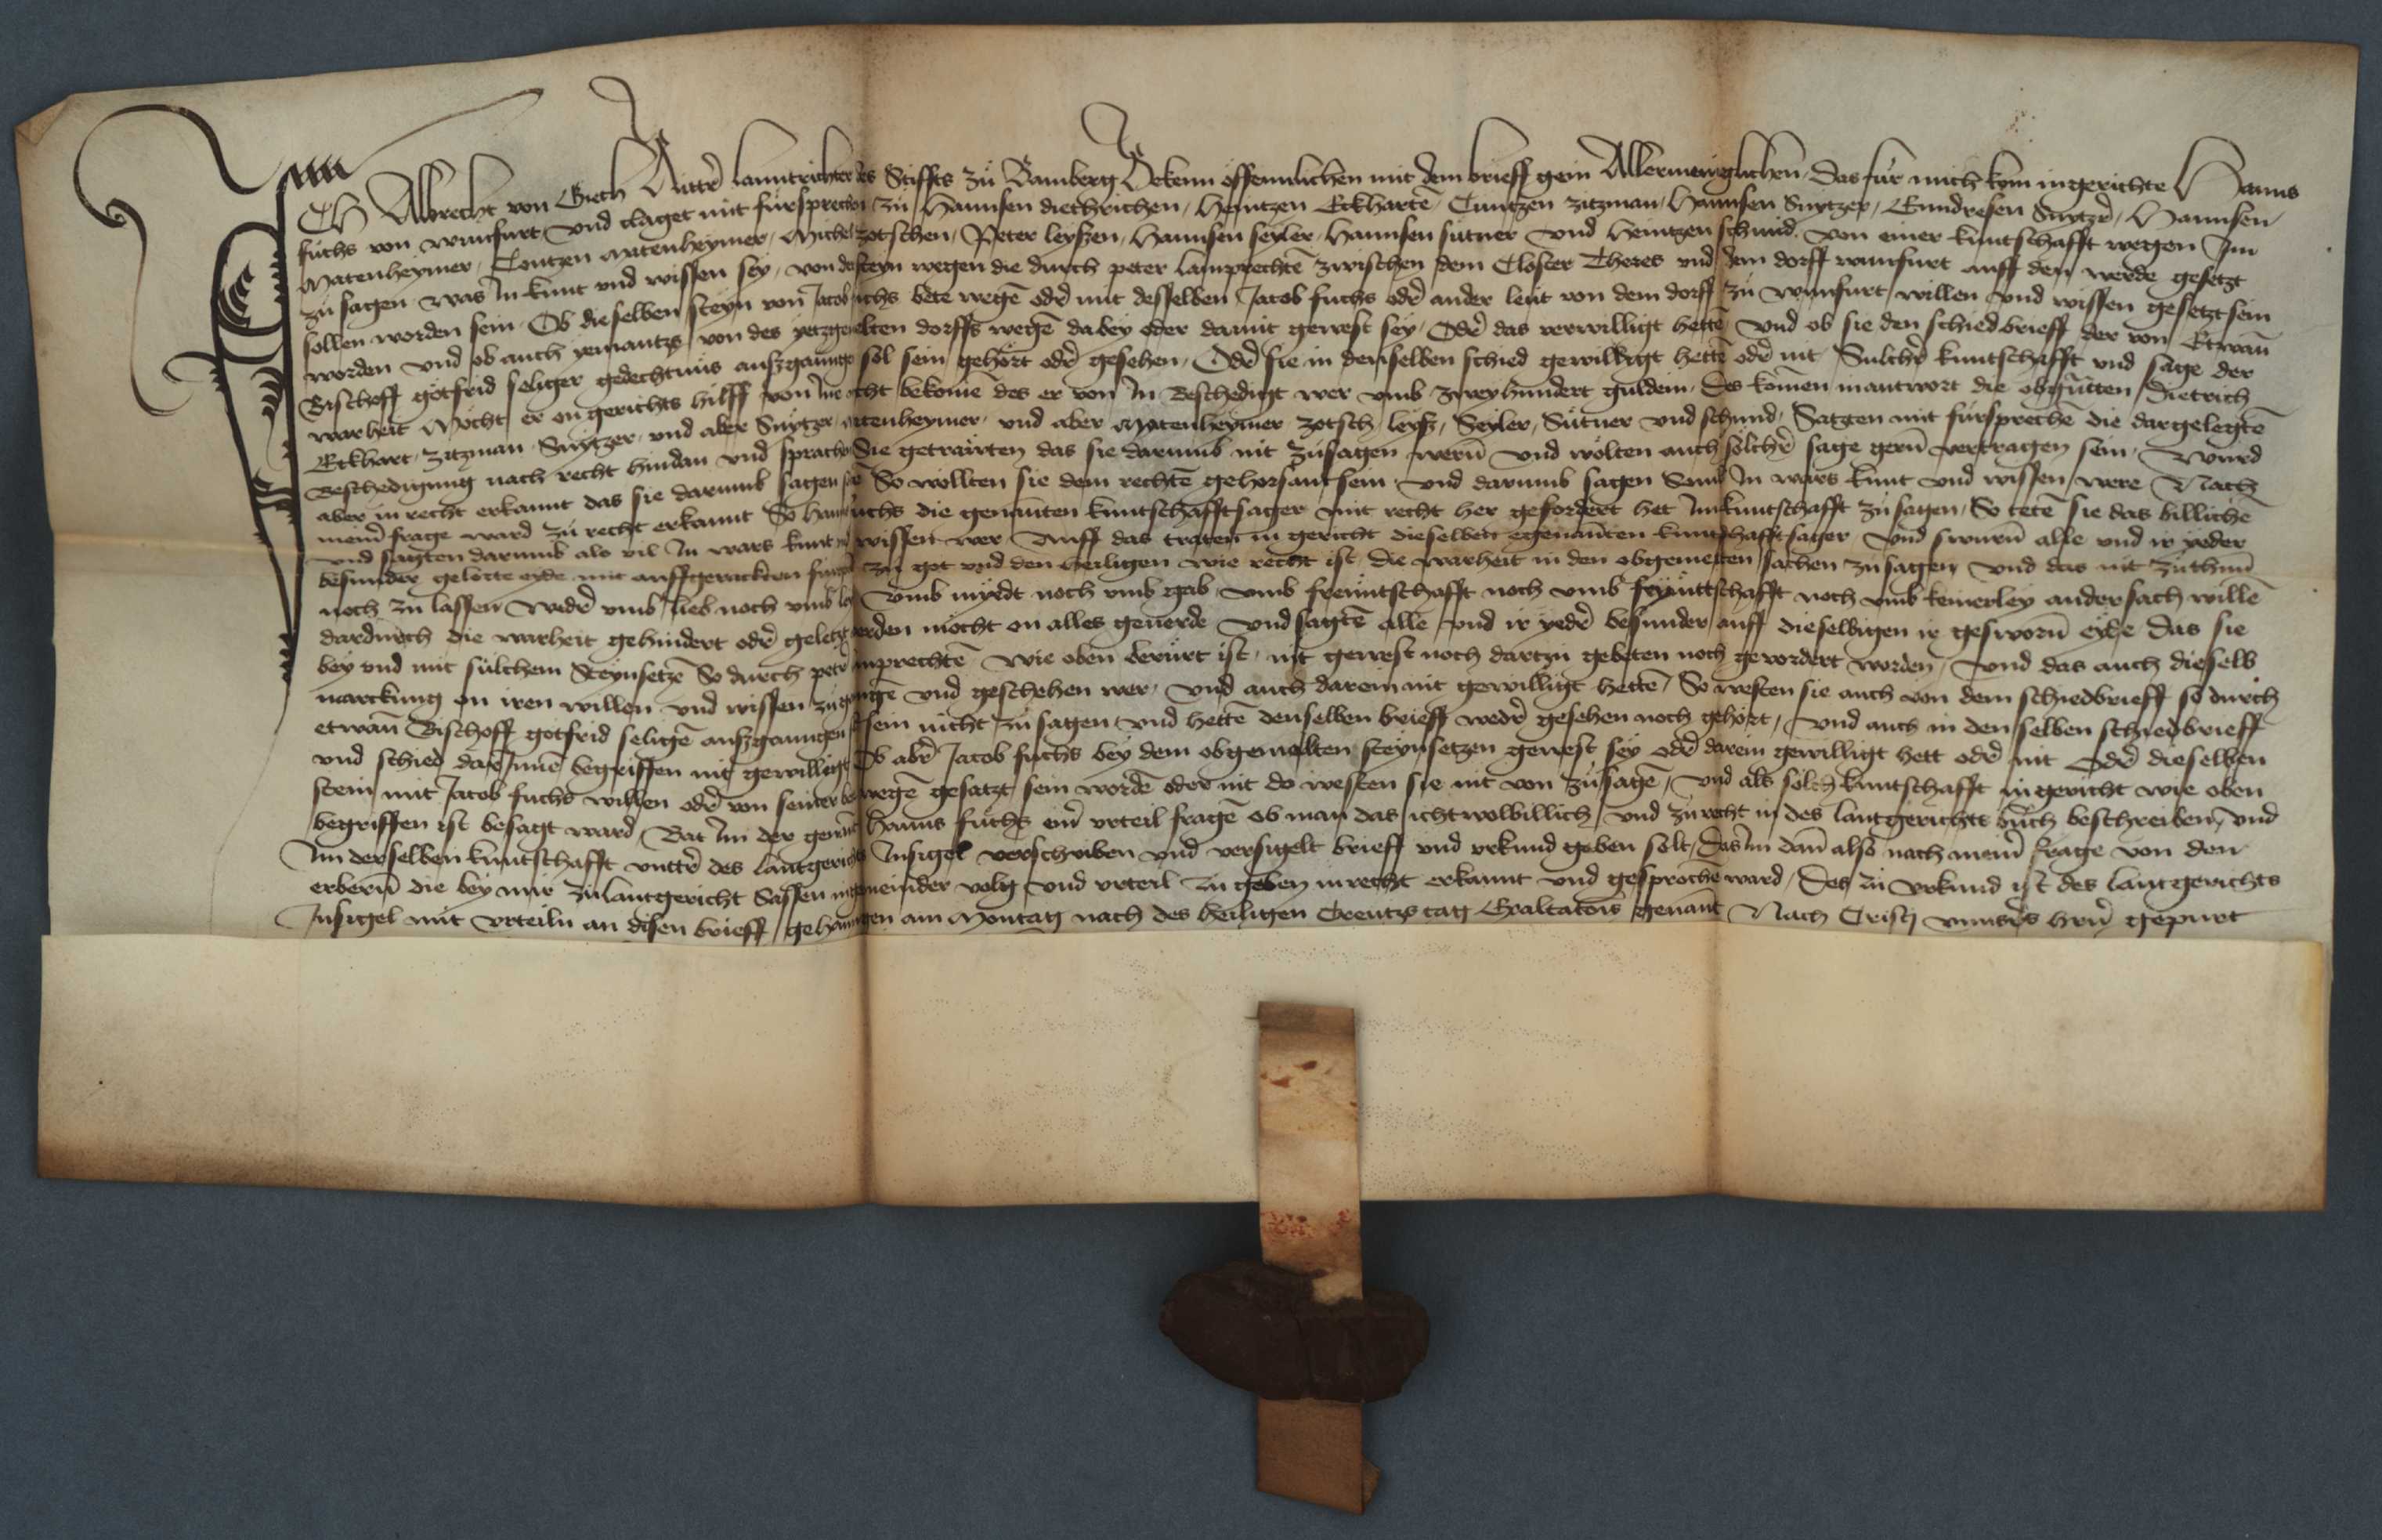 Ich Albrecht von Giech Ritter lanntrichter des Stiffts zu Bamberg Bekenn offennlichen mit dem brieff gein Allermeniglichen Das fur mich kom in gerichte Hanns
fuchs von wunfurt vnd claget mit fursprechen zu Hannsen diethrichen / Heintzen Eckhartē Cuntzen zitzman / Hannsen Snytzer / Enndresen Snytzer / Hannsen
Matenheymer / Contzen matenheymer / Michel zotschen / Peter leyszen / Hannsen seyler / Hannsen sutner vnd Heintzen schmid von einer kuntschafft wegen Im
zu sagen was In kunt vnd wissen sey / von der steyn wegen die durch peter lamprechtē zwischen dem Closter Theres vnd dem dorff wunfurt auff den werde gesetzt
sollen worden sein Ob dieselben steyn von Jacob fuchs bete wegē oder mit desselben Jacob fuchs oder ander leut von dem dorff zu wunfurt willen vnd wissen gesetzt sein
worden vnd ob auch yemantzs von des yetzgemelten dorffs wegē dabey oder damit gewest sey / Oder das verwilligt hettē vnd ob sie den schiedbrieff der von Etwan̄
Bischoff gotfrid seliger gedechtnus auszgannge sol sein gehort oder gesehen / Oder sie in denselben schied gewilligt hettē oder nit Sulcher kuntschafft vnd sage der
warheit Mocht er on gerichts hilff von Ine nicht bekomē des er von In Beschedigt wer vmb zweyhundert guldein / Des komen in antwort die obgnn̄ten Dietrich
Eckhart / zitzman Snytzer / vnd aber Snytzer / matenheymer / vnd aber Matenheymer zotsch / leysz / Seyler / Sutner vnd schmid / Satzen mit fursprechē die dargelegtē
Beschedigung nach recht hindan vnd sprachen Sie getrawten das sie darumb nit zusagen wern̄ vnd wolten auch solcher sage gern̄ vertragen sein / Wurd
aber in recht erkannt das sie darumb sagen So wollten sie dem rechtē gehorsam sein vnd darumb sagen Souil In wars kunt vnd wissen were Nach
meiner frage ward zu recht erkannt So Hanns fuchs die genantē kuntschafftsager mit recht her gefordert het Im kuntschafft zu sagen / So tetē sie das billichē
vnd sagten darumb als vil In wars kunt vnd wissen wer Auff das traten in gericht dieselben egenantē kuntschafftsager vnd swurn̄ alle vnd ir yeder
besunder gelerte eyde mit auffgerackten fingern zu got vnd den heiligen wie recht ist / die warheit in den obgemelten sachen zu sagen vnd das nit zuthun̄
noch zu lassen weder vmb lieb noch vmb leyd vmb myedt noch vmb gab / vmb freuntschafft noch vmb feyntschafft noch vmb keinerley ander sach willē
dardurch die warheit gehindert oder geletzt werden mocht on alles geuerde vnd sagtē alle vnd ir yeder besunder auff dieselbigen ir gesworn̄ eyde Das sie
bey vnd mit sulchem Steynsetzē So durch peter lamprechtē wie oben berurt ist / nit gewest noch dartzu gebeten noch geuordert worden / vnd das auch dieselb
marckung on iren willen vnd wissen zuganngē vnd geschehen wer / vnd auch darein nit gewilligt hettē / So westen sie auch von dem schiedbrieff so durch
etwan̄ Bischoff gotfrid seligē auszganngen sol sein nicht zu sagen vnd hettē denselben brieff weder gesehen noch gehort / vnd auch in denselben schiedbrieff
vnd schied darInnē begriffen nit gewilligt Ob aber Jacob fuchs bey dem obgemelten steynsetzen gewest sey oder darein gewilligt hett oder nit Oder dieselben
stein mit Jacob fuchs willen oder von seiner bete wegē gesatzt sein wordē oder nit do westen sie nit von zu sagē / vnd als solch kuntschafft in gericht wie oben
begriffen ist besagt ward / Bat Im der genant Hanns fuchs ein̄ vrteil fragē ob man das icht wolbillich vnd zu recht in des lantgerichts buch beschreiben / vnd
Im derselben kuntschafft vntter des lantgerichts Insigel verschriben vnd versigelt brieff vnd vrkund geben solt / Das Im dan̄ also nach meiner frage von den
erbern̄ die bey mir zu lantgericht Sassen in gemeinder volg vnd vrteil zu geben in recht erkannt vnd gesprochē ward / Des zu vrkund ist des lantgerichts
Insigel mit vrteiln an disen brieff gehanngen am Montag nach des heiligen Creutzs tag Exaltatōis genant Nach Cristi vnnsers hern̄ gepurt